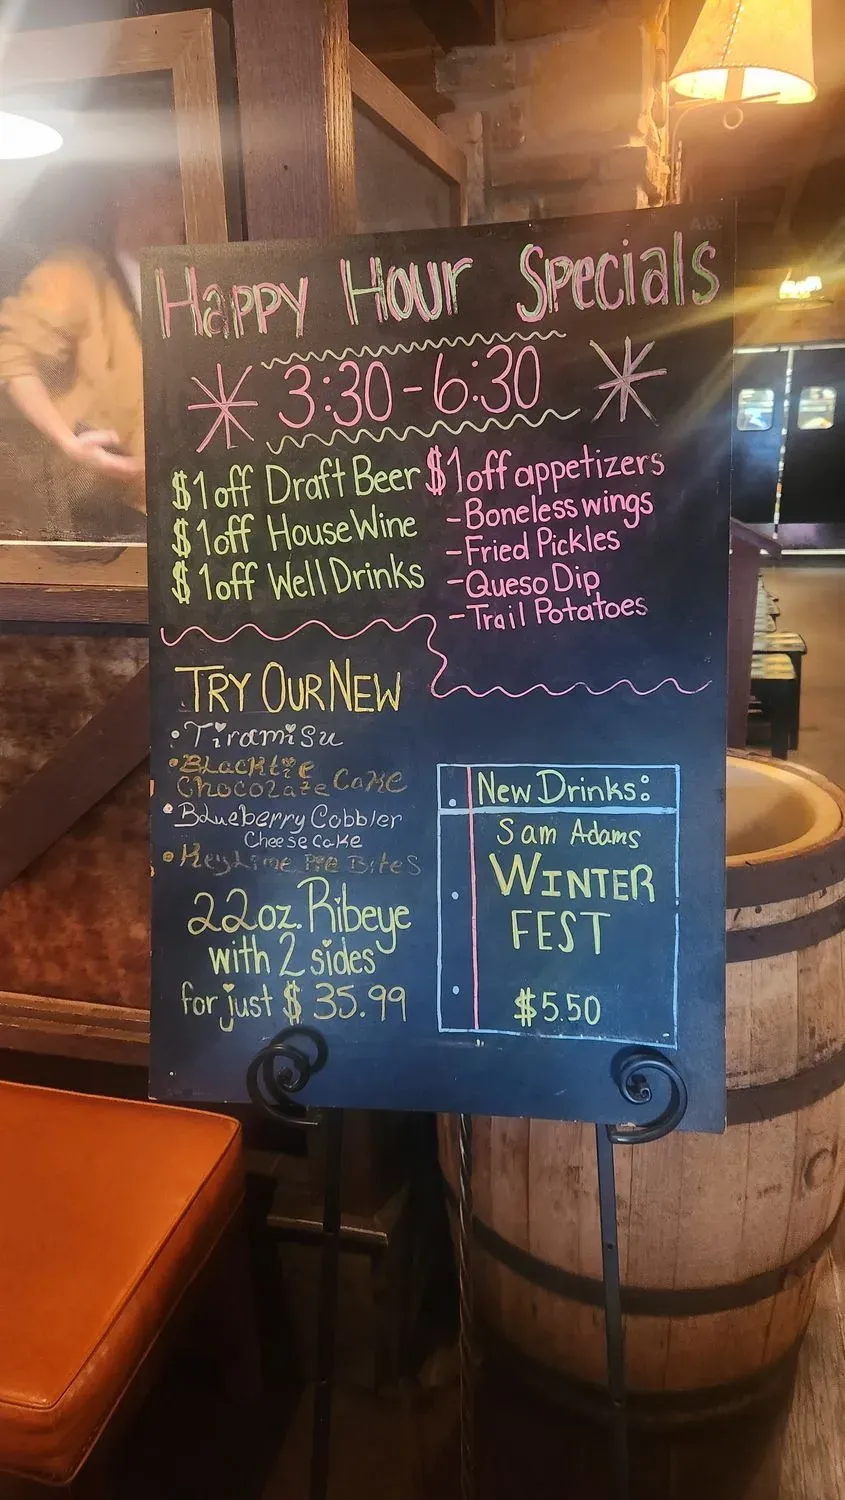 Happy Hour Specials
3:30-6:30
$1 off Draft Beer
$1 off House Wine
$1 off Well Drinks
$1 off appetizers
- Boneless wings
- Fried Pickles
- Queso Dip
- Trail Potatoes
TRY OUR NEW
• Tiramisu
• Blacktie
Chocolate Cake
• Blueberry Cobbler
Cheese Cake
• Key Lime Pie Bites
22oz. Ribeye
with 2 sides
for just $35.99
New Drinks:
Sam Adams
WINTER
FEST
$5.50